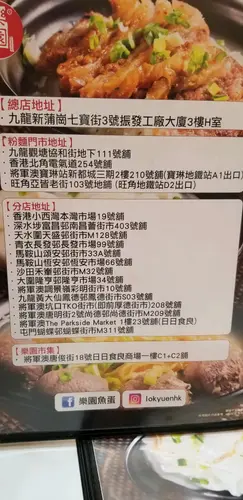 【總店地址】
·九龍新蒲崗七寶街3號振發工廠大廈3樓H室
【粉麵門市地址】
·九龍觀塘協和街地下111號舖
·香港北角電氣道254號舖
·將軍澳寶琳站新都城三期2樓210號舖(寶琳地鐵站A1出口)
·旺角亞皆老街103號地舖(旺角地鐵站D2出口)
【分店地址】
·香港小西灣本灣市場19號舖
·深水埗富昌邨南昌薈街市403號舖
·天水圍天盛邨街市M128號舖
·青衣長發邨長發市場99號舖
·馬鞍山頌安邨街市33A號舖
·馬鞍山恆安邨恆安市場66號舖
·沙田禾輋邨街市M32號舖
·大圍隆亨邨隆亨市場34號舖
·將軍澳調景嶺彩明街市10號舖
·九龍黃大仙鳳德邨鳳德街市S03號舖
·將軍澳坑口TKO街市(即前厚德街市)208號舖
·將軍澳唐明街2號尚德邨尚德街市M209號舖
·將軍澳The Parkside Market 1樓23號舖(日日食良)
·屯門蝴蝶邨蝴蝶街市M311號舖
【樂園市集】
·將軍澳唐俊街18號日日食良商場一樓C1+C2舖
樂園魚蛋
lokyuenhk